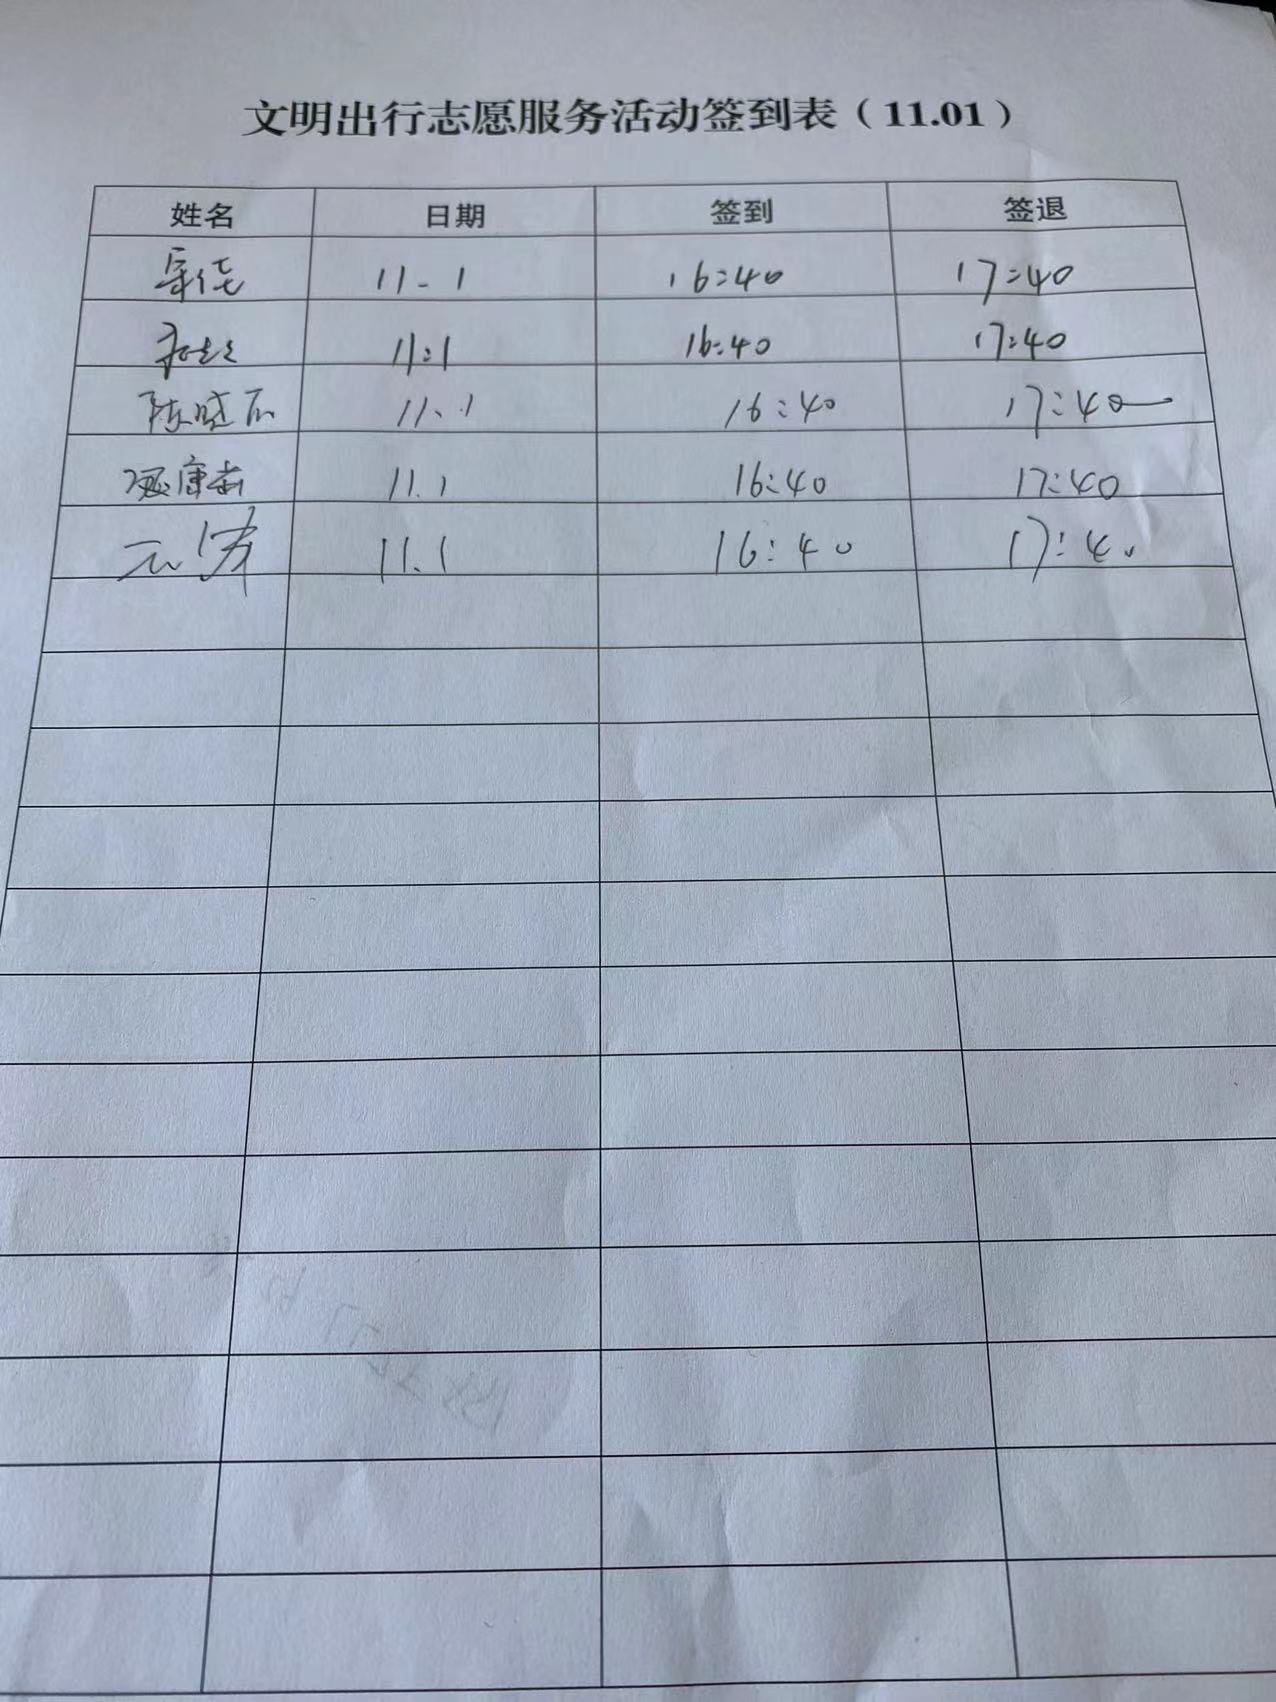 文明出行志愿服务活动签到表（11.01）
姓名 日期 签到 签退
11-1 16:40 17:40
11:1 16:40 17:40
陈晓 11.1 16:40 17:40
康 11.1 16:40 17:40
11.1 16:40 17:40